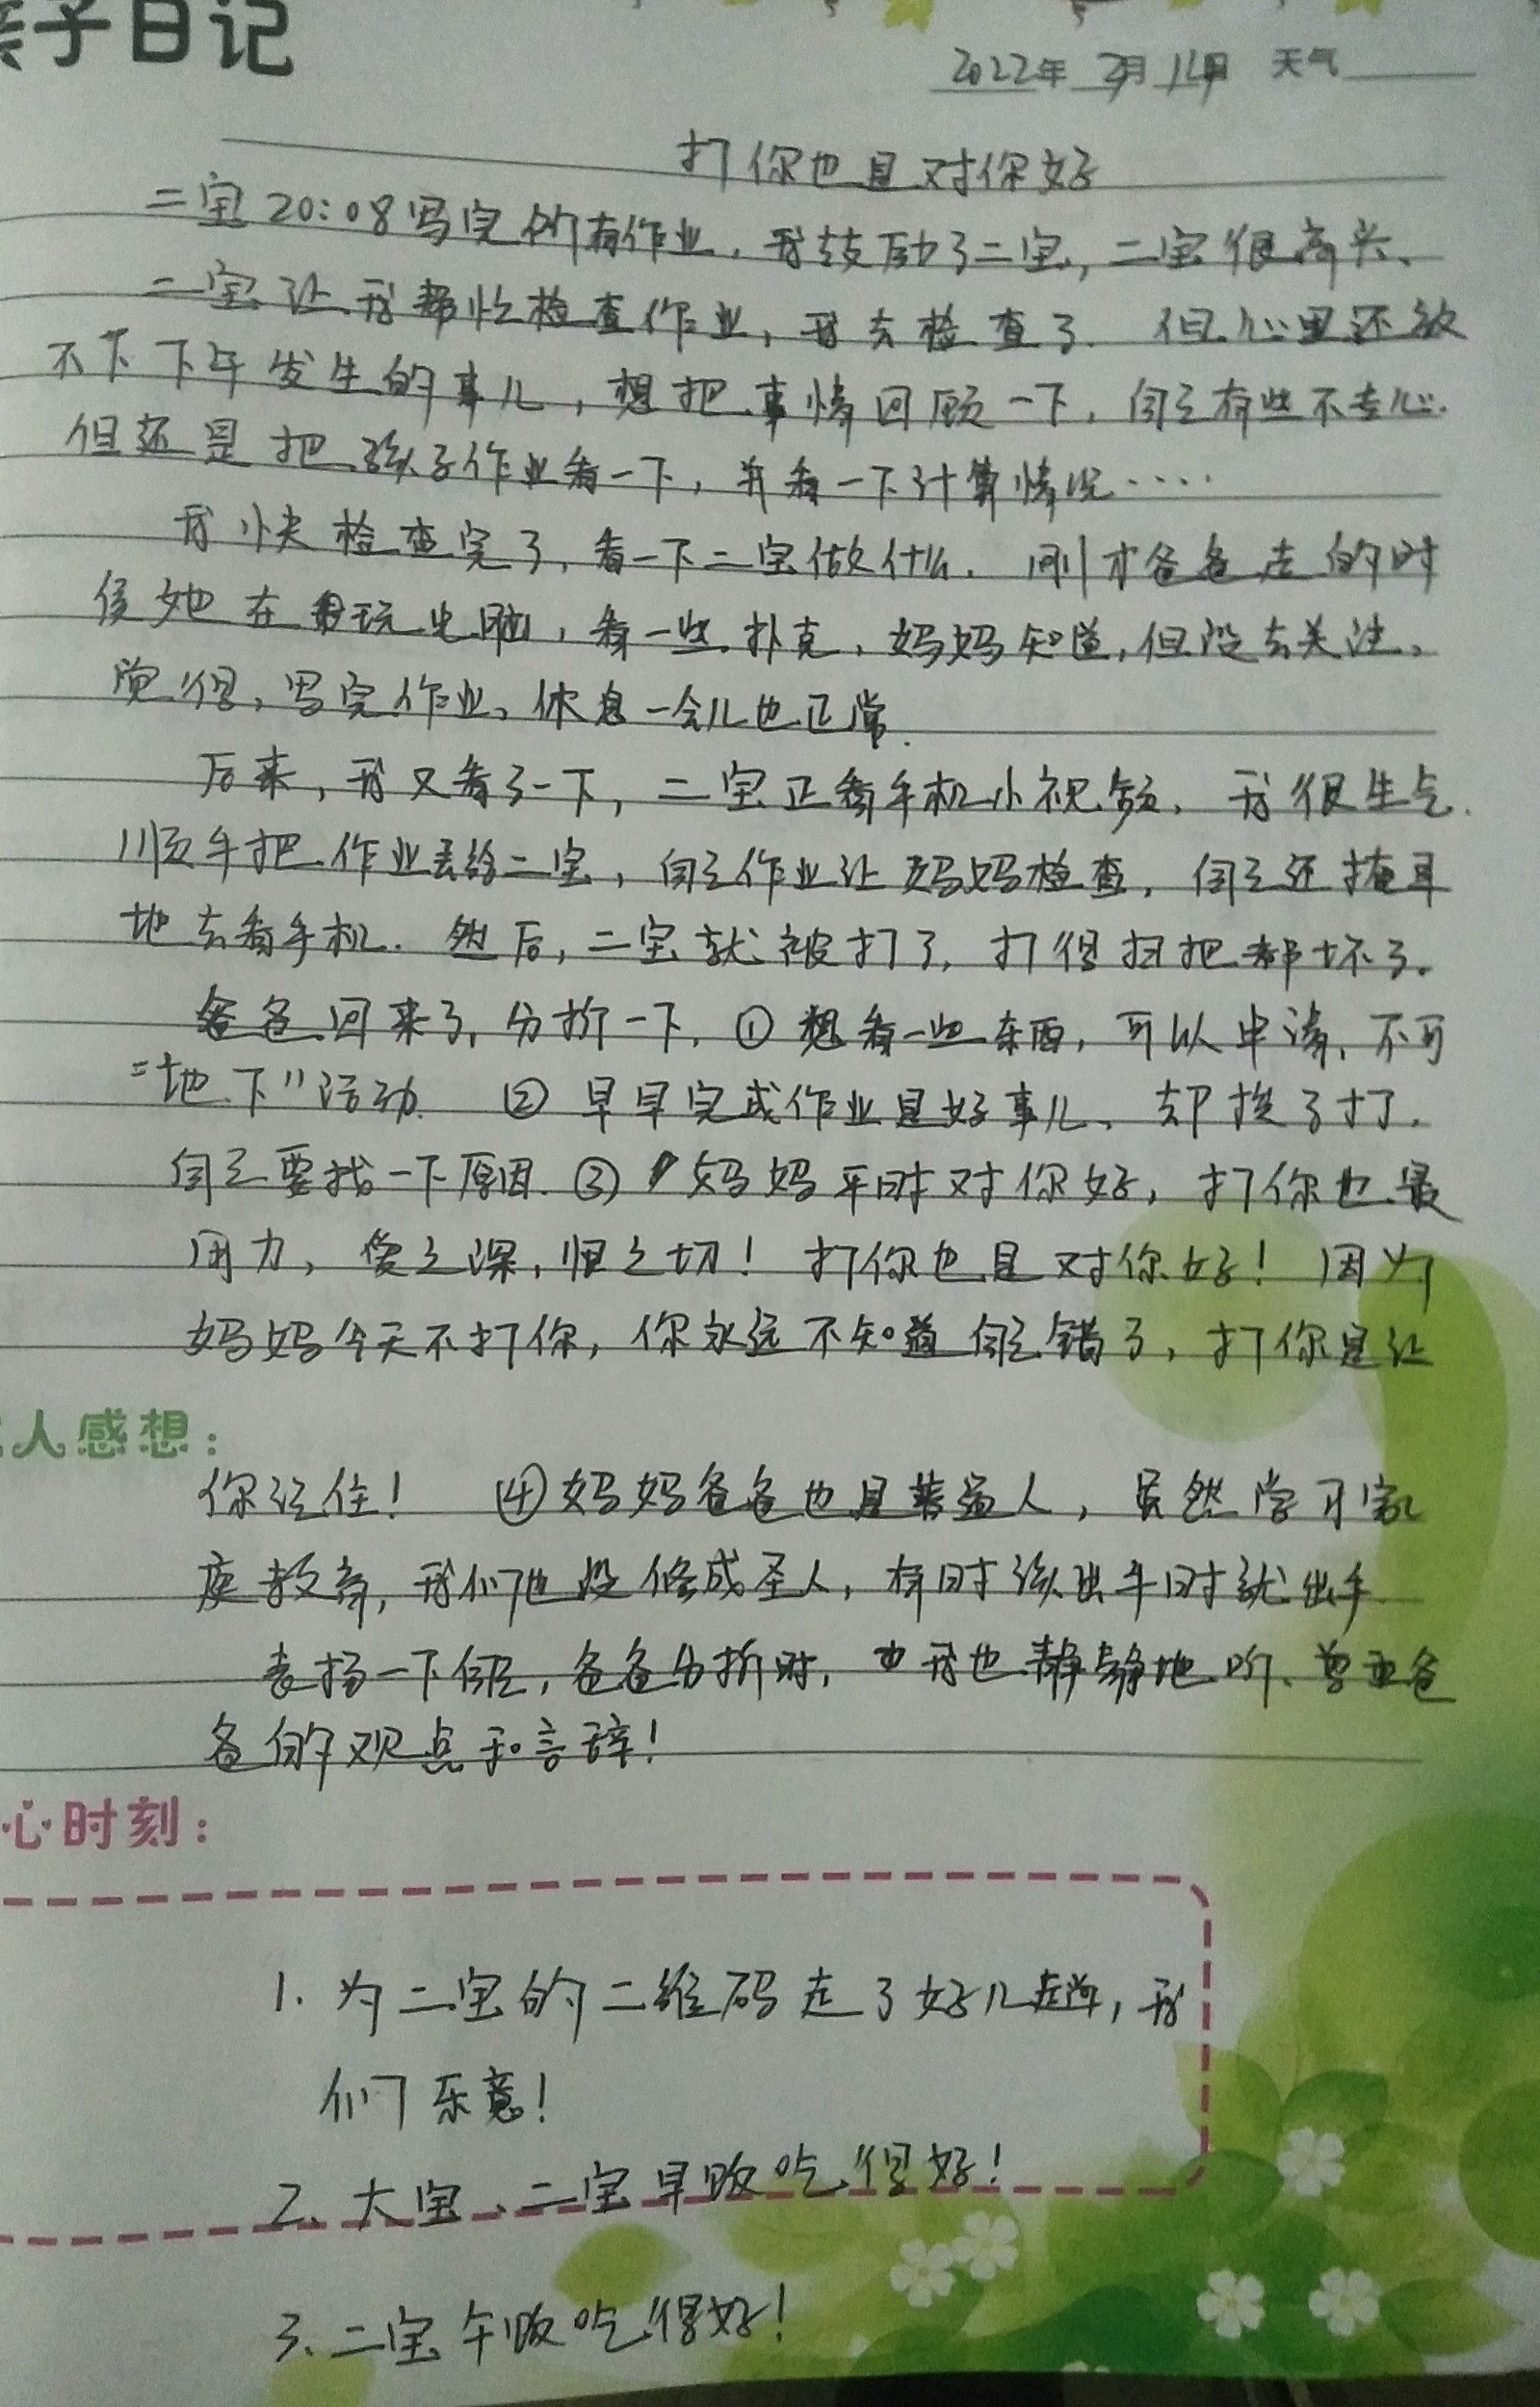 亲子日记
2022年 2月 14日 天气
打你也是对你好
二宝20:08写完所有作业，我鼓励了二宝，二宝很高兴、
二宝让我帮忙检查作业，我去检查了．但心里还放
不下下午发生的事儿，想把事情回顾一下，自己有些不专心．
但还是把孩子作业看一下，并看一下计算情况……
我快检查完了，看一下二宝做什么．刚才爸爸走的时
侯她在玩电脑，看一些扑克，妈妈知道，但没去关注，
觉得，写完作业、休息一会儿也正常．
后来，我又看了一下，二宝正看手机小视频，我很生气．
顺手把作业丢给二宝，自己作业让妈妈检查，自己还掩耳
地去看手机．然后，二宝就被打了，打得扫把都坏了．
爸爸回来了，分析一下，①想看一些东西，可以申请，不可
“地下”活动．②早早完成作业是好事儿、却挨了打．
自己要找一下原因．③妈妈平时对你好，打你也最
用力，爱之深，恨之切！打你也是对你好！因为
妈妈今天不打你，你永远不知道自己错了，打你是让
人感想：
你记住！ ④妈妈爸爸也是普通人，虽然学习家
庭教育，我们也没修成圣人，有时该出手时就出手．
表扬一下自己，爸爸分析时，我也静静地听、尊重爸
爸的观点和言辞！
心时刻：
1.为二宝的二维码走了好几趟，我
们乐意！
2、大宝、二宝早饭吃得好！
3、二宝午饭吃得好！